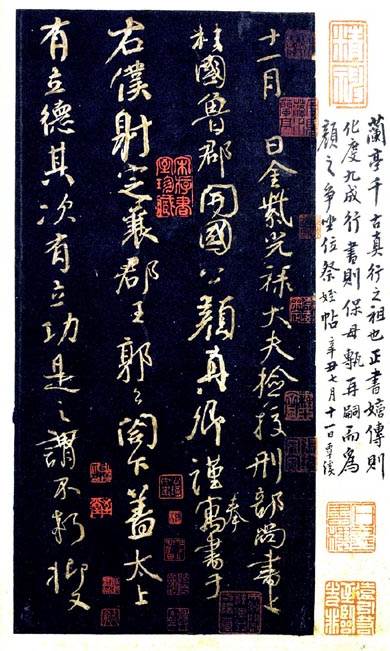 蘭亭千古真行之祖也正書嫡傳則
化度九成行書則保母甎再嗣而為
顏之爭坐位祭姪帖 辛丑七月十一日覃溪
十一月 日金紫光祿大夫檢校刑部尚書上
柱國魯郡開國公顏真卿謹奉寓書于
右僕射定襄郡王郭公閤下蓋太上
有立德其次有立功是之謂不朽抑又
宋存書室珍藏